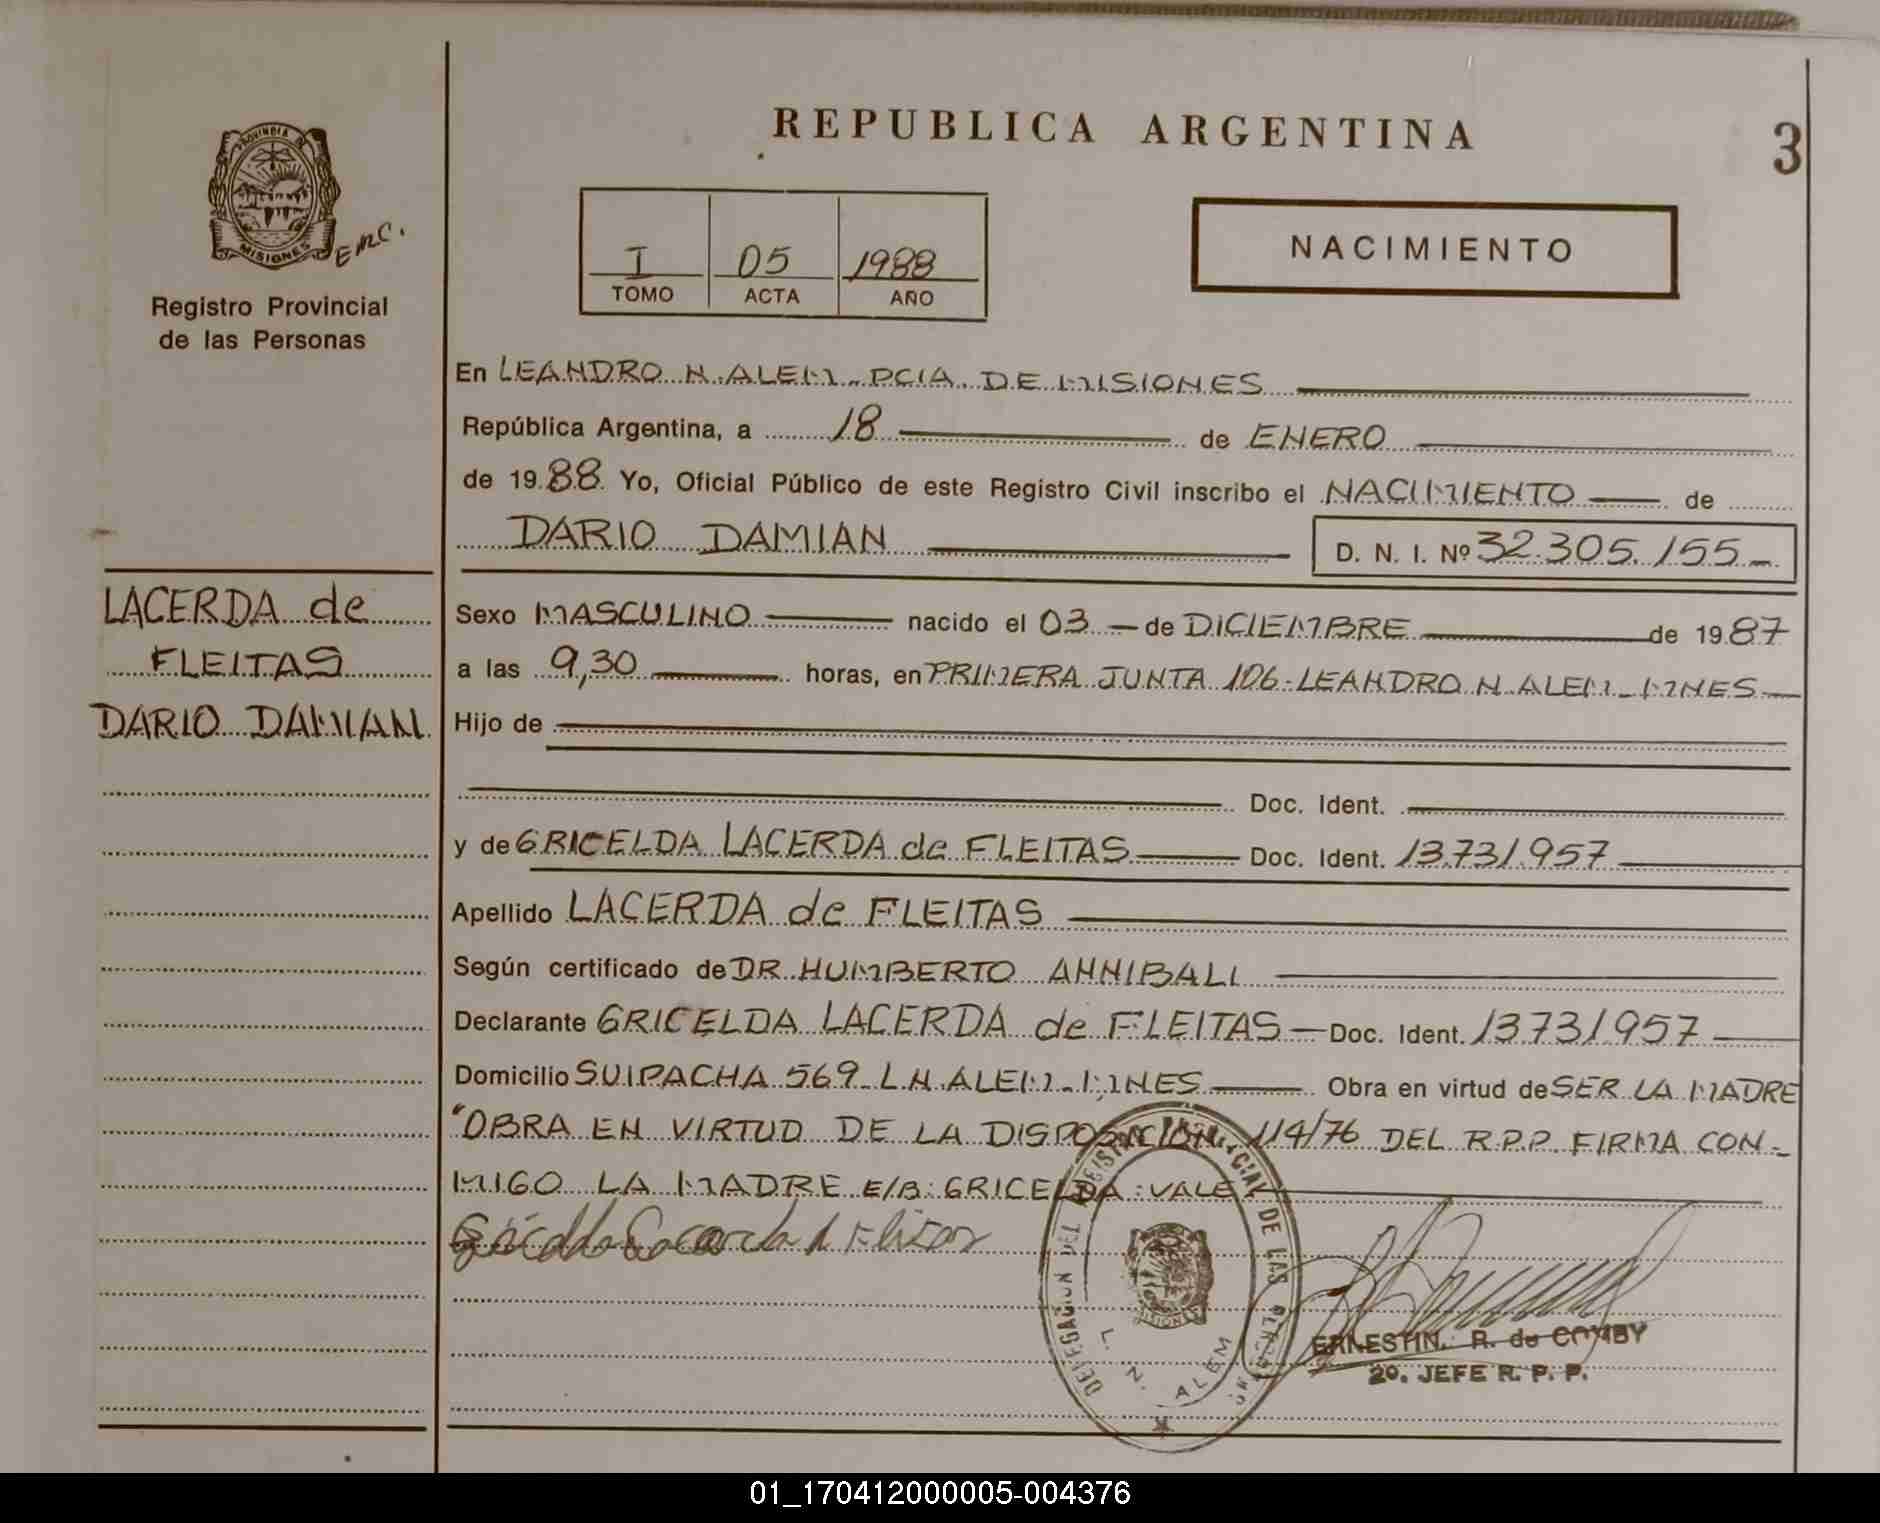 REPUBLICA ARGENTINA
3
PROVINCIA DE
MISIONES
Registro Provincial
de las Personas
I 05 1988
TOMO ACTA AÑO
NACIMIENTO
En LEANDRO N. ALEM - PCIA. DE MISIONES
República Argentina, a 18 de ENERO
de 1988 Yo, Oficial Público de este Registro Civil inscribo el NACIMIENTO de
DARIO DAMIAN D. N. I. Nº 32.305.155.-
LACERDA de
FLEITAS
DARIO DAMIAN
Sexo MASCULINO nacido el 03 - de DICIEMBRE de 1987
a las 9,30 horas, en PRIMERA JUNTA 106 - LEANDRO N. ALEM - MNES
Hijo de
Doc. Ident.
y de GRICELDA LACERDA de FLEITAS Doc. Ident. 13.731.957
Apellido LACERDA de FLEITAS
Según certificado de DR. HUMBERTO ANNIBALI
Declarante GRICELDA LACERDA de FLEITAS - Doc. Ident. 13.731.957
Domicilio SUIPACHA 569 - L.N. ALEM - MNES Obra en virtud de SER LA MADRE
"OBRA EN VIRTUD DE LA DISPOSICION 114/76 DEL R.P.P. FIRMA CON-
MIGO LA MADRE E/B: GRICELDA: VALE
DELEGACION DEL REGISTRO PROVINCIAL DE LAS PERSONAS
L. N. ALEM
R. de COMBY
2º. JEFE R. P. P.
01_170412000005-004376